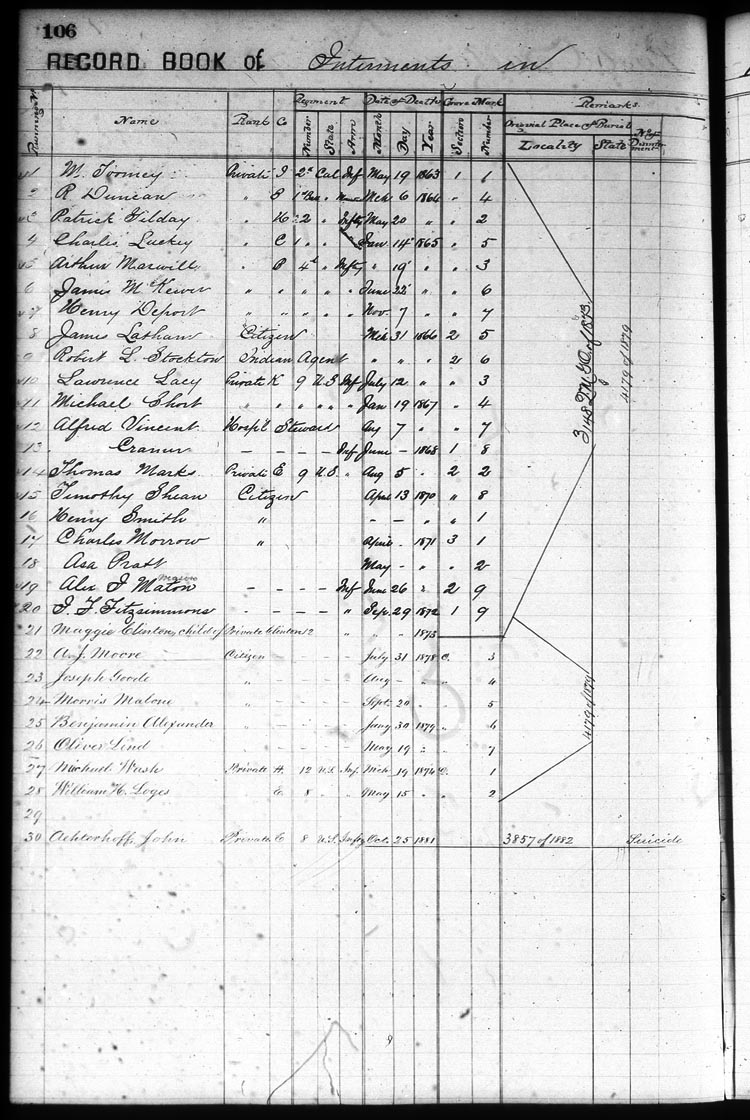 106
RECORD BOOK of Interments in
Regiment Date of Death Grave Mark Remarks
Name Rank Co Number State Arm Month Day Year Section Number Original Place of Burial
Locality State
1 M. Toomey Private I 2d Cal Inf May 19 1863 1 1
2 R Duncan " B 1st " Mch 6 1864 " 4
3 Patrick Gilday " K 2 " Infty May 20 " " 2
4 Charles Luckey " C 1 " Jan 14 1865 " 5
5 Arthur Maxwill " 4th " Infty " 19 " " 3
6 James " " " " " June 22 " " 6
7 Henry Deport " " " " " Nov. 7 " " 7
8 James Latham Citizen Mch 31 1866 2 5
9 Robert L. Stockton Indian Agent " " " 2 6
10 Lawrence Lacy Private K 9 U.S Inf July 12 " " 3
11 Michael Short " " " " " Jan 19 1867 " 4
12 Alfred Vincent Hosp'l Steward Aug 7 " " 7
13 Cramer – – – – Inf June – 1868 1 8
14 Thomas Marks Private E 9 U.S. " Aug 5 " 2 2
15 Timothy Shean Citizen April 13 1870 " 8
16 Henry Smith " – – " " 1
17 Charles Morrow " April – 1871 3 1
18 Asa Pratt May – " " 2
19 Alex J Maton – – – – Inf June 26 " 2 9
20 J. F. Fitzsimmons – – – – " Sep. 29 1872 1 9
3148 Q.M.G.O. of 1873
4179 of 1879
21 Maggie Clinton, child of Private Clinton 12 " " – 1873
22 A. J. Moore Citizen – – – – July 31 1878 C. 3
23 Joseph Goode " – – – – Aug – " " 4
24 Morris Malone " – – – – Sept. 20 " 5
25 Benjamin Alexander " – – – – Jany 30 1879 " 6
26 Oliver Lind – – – – May 19 " 7
27 Michael Wash Private H. 12 U.S. Inf. Mch. 19 1874 C. 1
28 William H. Loges " C. 8 " " May 15 " " 2
4179 of 1879
29
30 Achterhoff, John Private C 8 U.S. Infty Oct. 25 1881 3857 of 1882 Suicide